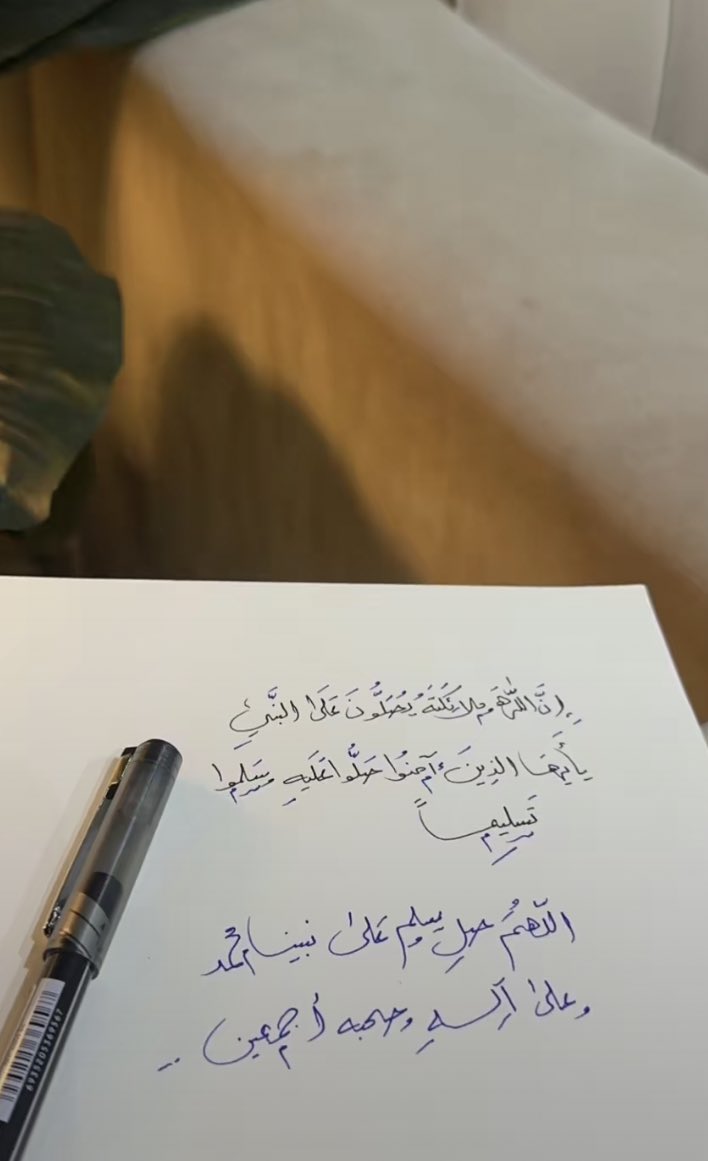 إِنَّ اللَّهَ وملائكتَهُ يُصَلُّونَ عَلَىٰ النَّبِيِّ
يأَيُّهَا الذِينَ ءآمنُوا صَلُّوا عَلَيهِ وسَلِموا
تَسلِيماً
اللّهمُ صلِ وسلم علىٰ نبينا محمد
وعلىٰ آلِهِ وصحبه أجمعين ..
6935205369367